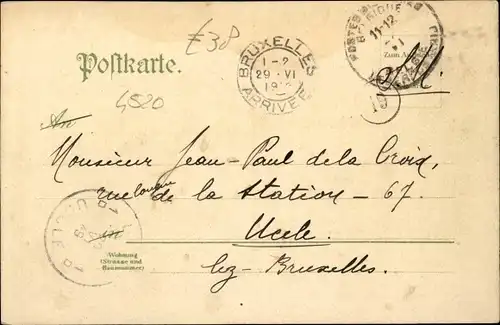 €38
Postkarte.
4520
BRUXELLES
1-2
29 VI
ARRIVEE
11-12
An
Monsieur Jean-Paul de la Croix,
rue longue de la Station - 67.
in Uccle.
Wohnung
(Strasse und
Hausnummer)
lez-Bruxelles.